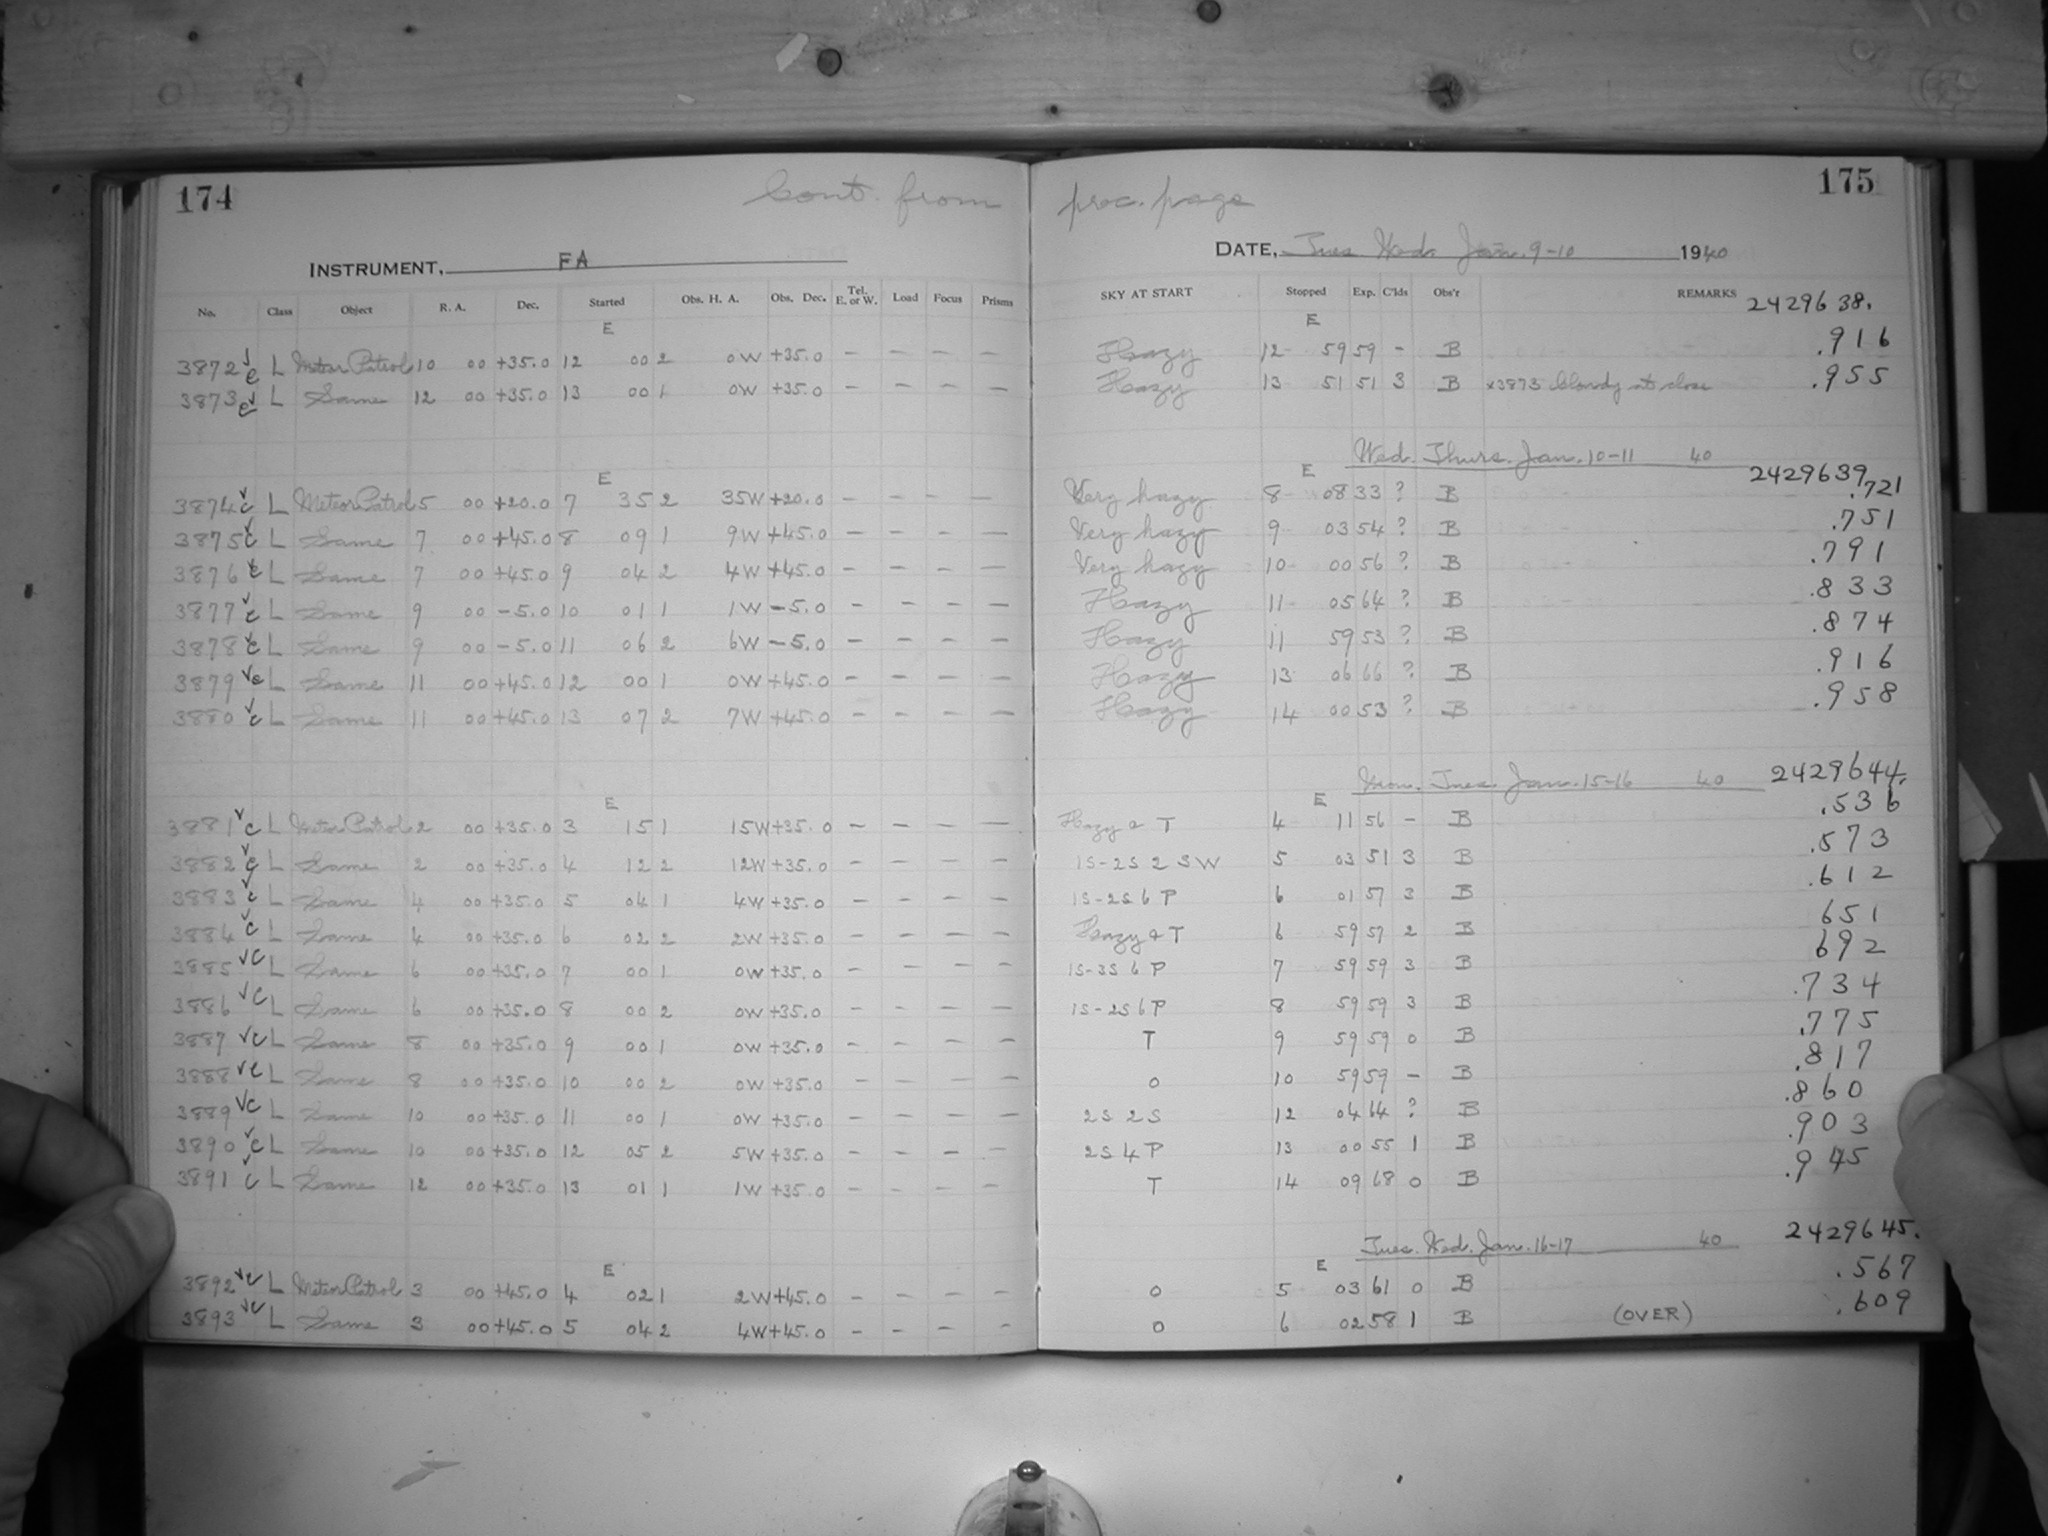 174 Cont. from prec. page 175
INSTRUMENT, FA DATE, Tues. Wed. Jan. 9-10 1940
No. Class Object R. A. Dec. Started Obs. H. A. Obs. Dec. Tel. E. or W. Load Focus Prisms SKY AT START Stopped Exp. C'lds Obs'r REMARKS 2429638.
E E
3872 L Meteor Patrol 10 00 +35.0 12 00 2 0W +35.0 – – – – Hazy 12 59 59 – B .916
3873 L Same 12 00 +35.0 13 00 1 0W +35.0 – – – – Hazy 13 51 51 3 B x3873 cloudy at close .955
Wed. Thurs. Jan. 10-11 40 2429639
E E
3874 c L Meteor Patrol 5 00 +20.0 7 35 2 35W +20.0 – – – – Very hazy 8 08 33 ? B .721
3875 c L Same 7 00 +45.0 8 09 1 9W +45.0 – – – – Very hazy 9 03 54 ? B .751
3876 c L Same 7 00 +45.0 9 04 2 4W +45.0 – – – – Very hazy 10 00 56 ? B .791
3877 c L Same 9 00 –5.0 10 01 1 1W –5.0 – – – – Hazy 11 05 64 ? B .833
3878 c L Same 9 00 –5.0 11 06 2 6W –5.0 – – – – Hazy 11 59 53 ? B .874
3879 c L Same 11 00 +45.0 12 00 1 0W +45.0 – – – – Hazy 13 06 66 ? B .916
3880 c L Same 11 00 +45.0 13 07 2 7W +45.0 – – – – Hazy 14 00 53 ? B .958
Mon. Tues. Jan. 15-16 40 2429644.
E E
3881 c L Meteor Patrol 2 00 +35.0 3 15 1 15W +35.0 – – – – Hazy & T 4 11 56 – B .536
3882 c L Same 2 00 +35.0 4 12 2 12W +35.0 – – – – 1S-2S 2 SW 5 03 51 3 B .573
3883 c L Same 4 00 +35.0 5 04 1 4W +35.0 – – – – 1S-2S 6 P 6 01 57 3 B .612
3884 c L Same 4 00 +35.0 6 02 2 2W +35.0 – – – – Hazy & T 6 59 57 2 B 651
3885 c L Same 6 00 +35.0 7 00 1 0W +35.0 – – – – 1S-3S 6 P 7 59 59 3 B 692
3886 c L Same 6 00 +35.0 8 00 2 0W +35.0 – – – – 1S-2S 6 P 8 59 59 3 B .734
3887 c L Same 8 00 +35.0 9 00 1 0W +35.0 – – – – T 9 59 59 0 B .775
3888 c L Same 8 00 +35.0 10 00 2 0W +35.0 – – – – 0 10 59 59 – B .817
3889 c L Same 10 00 +35.0 11 00 1 0W +35.0 – – – – 2S 2S 12 04 64 ? B .860
3890 c L Same 10 00 +35.0 12 05 2 5W +35.0 – – – – 2S 4 P 13 00 55 1 B .903
3891 c L Same 12 00 +35.0 13 01 1 1W +35.0 – – – – T 14 09 68 0 B .945
Tues. Wed. Jan. 16-17 40 2429645.
E E
3892 c L Meteor Patrol 3 00 +45.0 4 02 1 2W +45.0 – – – – 0 5 03 61 0 B .567
3893 c L Same 3 00 +45.0 5 04 2 4W +45.0 – – – – 0 6 02 58 1 B (OVER) .609